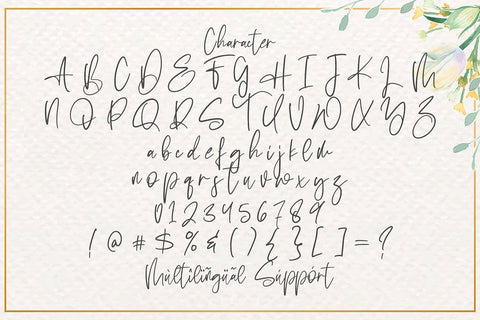 Character
A B C D E F G H I J K L M
N O P Q R S T U V W X Y Z
a b c d e f g h i j k l m
n o p q r s t u v w x y z
0 1 2 3 4 5 6 7 8 9
! @ # $ % & ( ) { } [ ] = ?
Múltilïñgüãl Súppórt